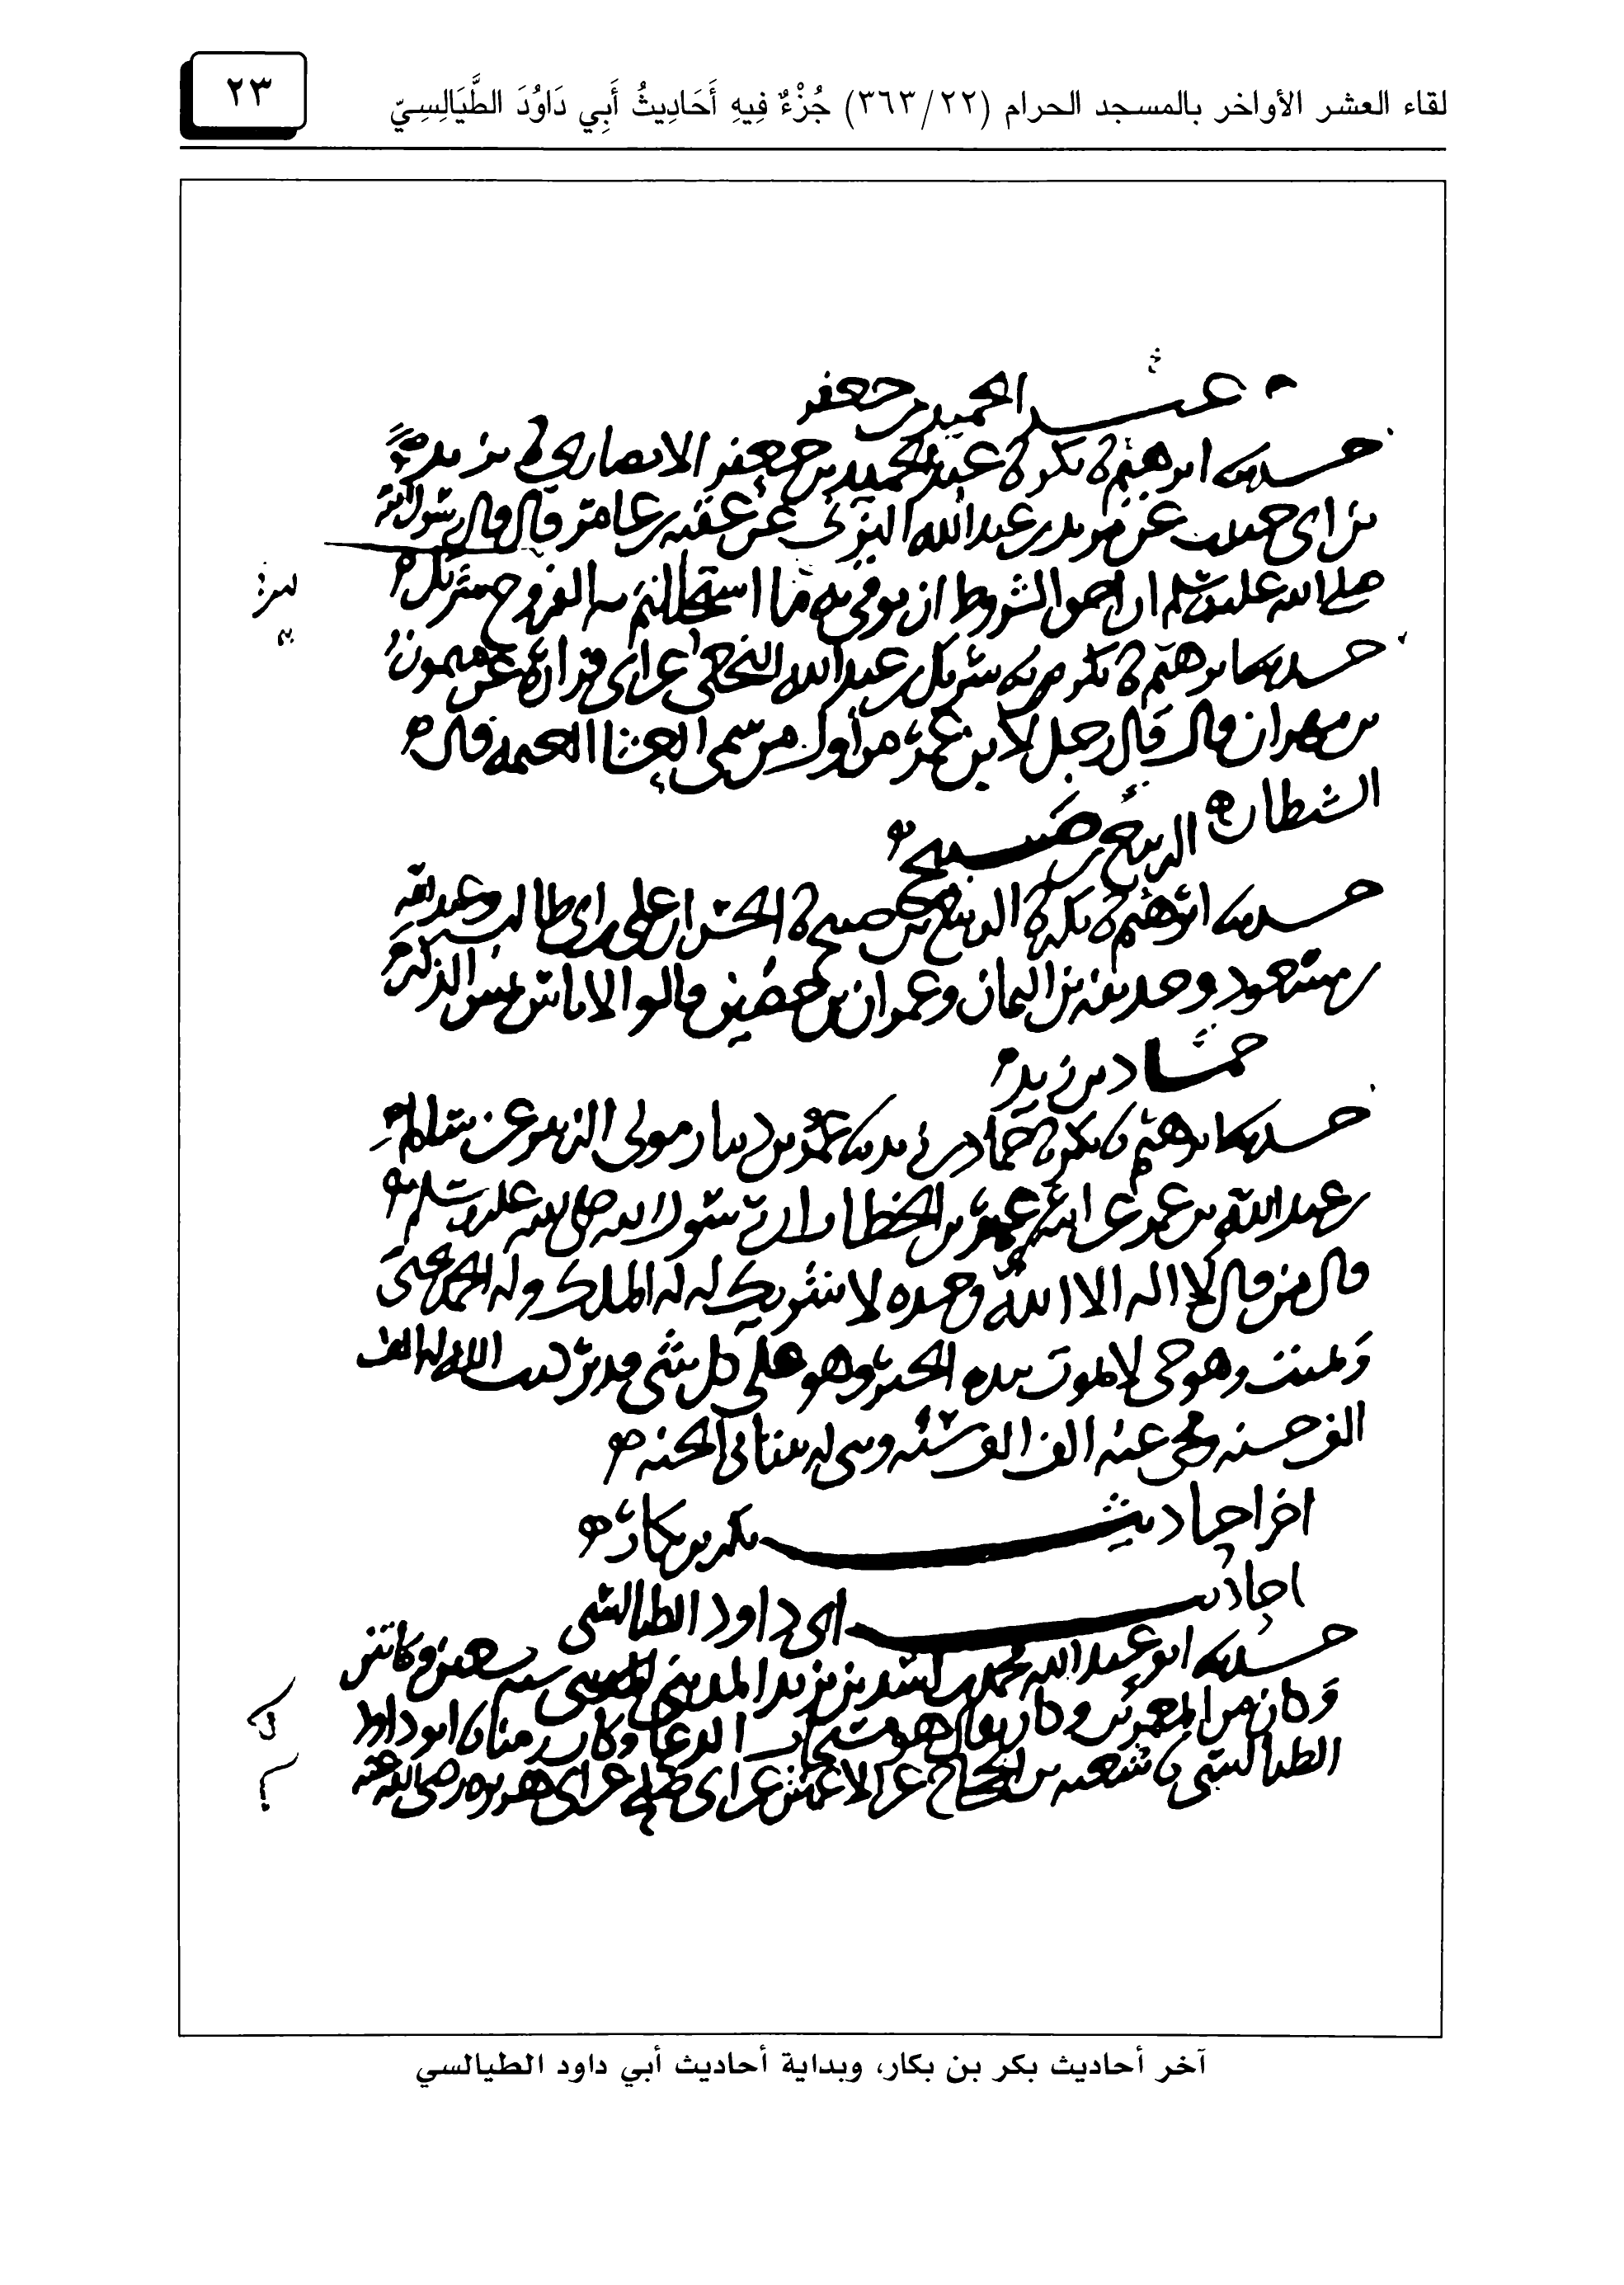 لقاء العشر الأواخر بالمسجد الحرام (٣٦٣/٢٢) جُزْءٌ فِيهِ أَحَادِيثُ أَبِي دَاوُدَ الطَّيَالِسِيّ
٢٣
عبد الحميد بن جعفر
حدثنا ابرهيم بكر عبد الحميد بن جعفر الانصاري يزيد
بن ابي حبيب عن مرثد بن عبد الله اليزني عن عقبه بن عامر قال قال رسول الله
صلى الله عليه وسلم ان احق الشروط ان يوفى به ما استحللتم به الفروج شريك
حدثنا ابرهيم بكر شريك بن عبد الله النخعي عن ابي فزاره عن ميمون
بن مهران قال قال رجل لابن عمر من اول من سمى العشا العتمه قال
الشيطان الربيع بن صبيح
حدثنا ابرهيم بكر الربيع بن صبيح الحسن ان علي بن ابي طالب وعبد الله
بن مسعود وحذيفه بن اليمان وعمران بن حصين قالوا لا باس بمس الذكر
حماد بن زيد
حدثنا ابرهيم بكر حماد بن زيد عمرو بن دينار مولى الزبير عن سالم
بن عبد الله بن عمر عن ابيه عن عمر بن الخطاب ان رسول الله صلى الله عليه وسلم
قال من قال لا اله الا الله وحده لا شريك له له الملك وله الحمد يحيى
ويميت وهو حي لا يموت بيده الخير وهو على كل شي قدير كتب الله له الف
الف حسنه ومحي عنه الف الف سيئه وبنى له بيتا في الجنه
اخر احاديث بكر بن بكار
احاديث ابي داود الطيالسي
حدثنا ابو عبد الله محمد بن اسد بن يزيد المديني سنه سبعين وماتين
وكان من المعمرين وكان يقال هو مستجاب الدعا وكان ابو داود
الطيالسي شعبه بن الحجاج عن الاعمش عن ابي عن ابي هريره رضي الله عنه
آخر أحاديث بكر بن بكار، وبداية أحاديث أبي داود الطيالسي